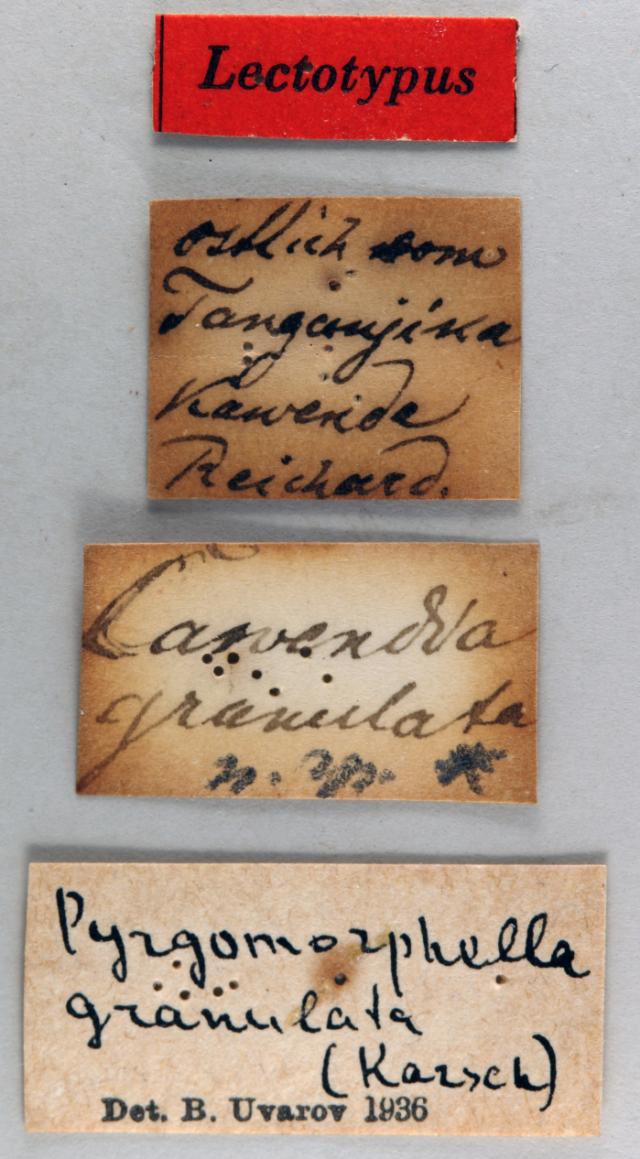 Lectotypus
östlich vom
Tanganjika
Kawende
Reichard.
Cawendia
granulata
n. sp. *
Pyrgomorphella
granulata
(Karsch)
Det. B. Uvarov 1936